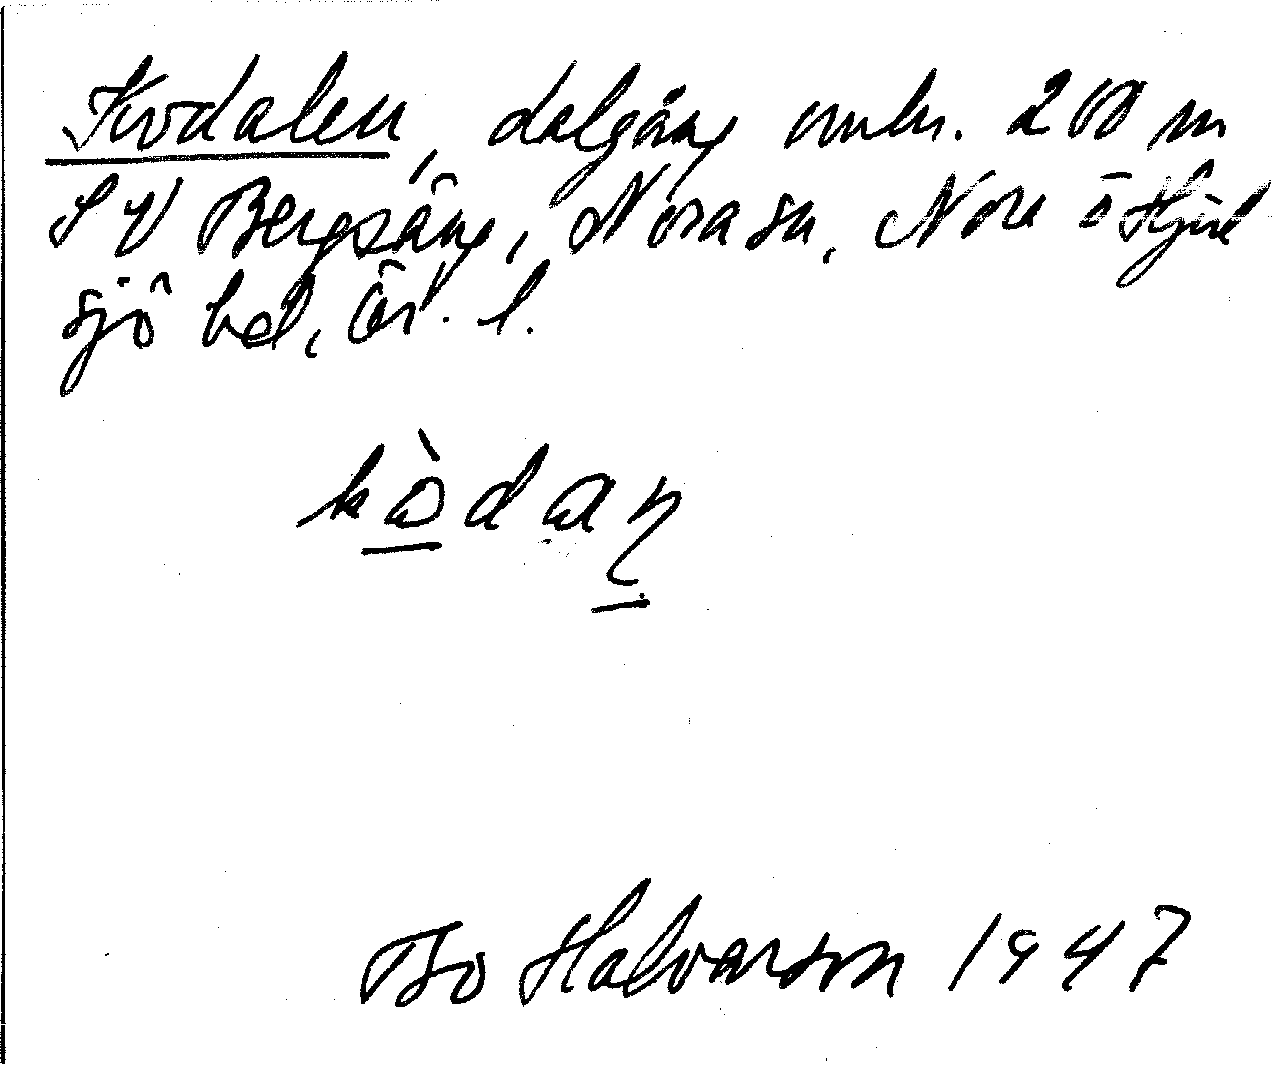 Kodalen, dalgång omkr. 200 m
SV Bergsäng, Nora sn, Nora o Hjul
sjö bd, Ör. l.
kòdaŋ
Bo Halvarson 1947